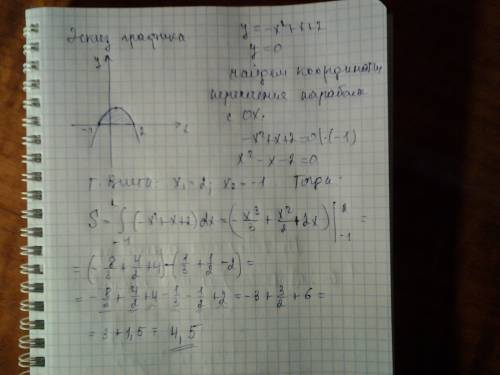 Эскиз графика
y = -x²+x+2
y = 0
y
-1 2 x
найдем координаты
пересечения параболы
с OX.
-x²+x+2=0 |·(-1)
x²-x-2=0
т. Виета: x₁=2; x₂=-1 Тогда:
S = ∫ (-x²+x+2) dx = (-x³/3 + x²/2 + 2x) |²₋₁ =
= (-8/3 + 4/2 + 4) - (1/3 + 1/2 - 2) =
= -8/3 + 4/2 + 4 - 1/3 - 1/2 + 2 = -3 + 3/2 + 6 =
= 3 + 1,5 = 4,5